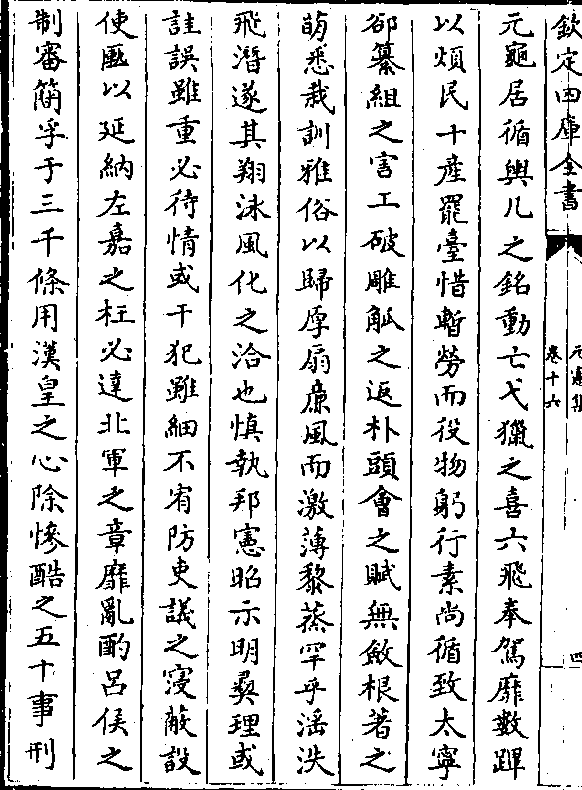 欽定四庫全書
元憲集
卷十六
四
元龜居循與几之銘動亡弋獵之喜六飛奉駕靡數蹕
以煩民十產罷臺惜暫勞而役物躬行素尚循致太寧
卻纂組之害工破雕觚之返朴頭會之賦無斂根著之
萌悉栽訓雅俗以歸厚扇廉風而激薄黎蒸罕乎滛泆
飛潛遂其翔泳風化之洽也慎執邦憲昭示明彞理或
詿誤雖重必待情或干犯雖細不宥防吏議之寖蔽設
使匭以延納左嘉之枉必達北軍之章靡亂酌呂侯之
制審簡孚于三千條用漢皇之心除慘酷之五十事刑